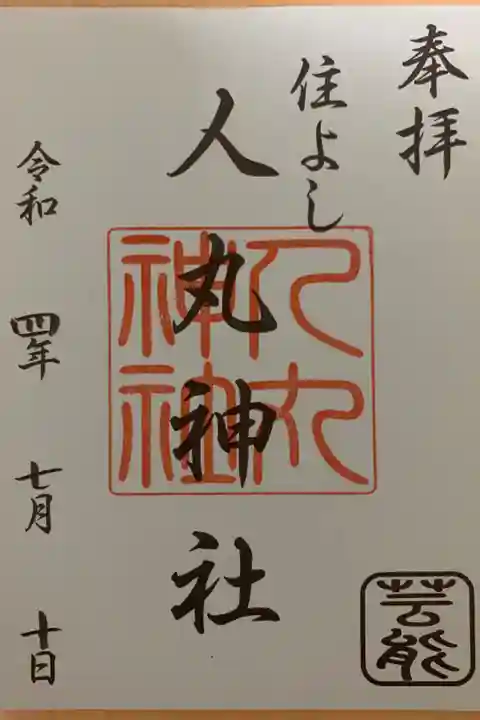 奉拝
住よし
人丸神社
人丸神社
芸能
令和 四年 七月 十日